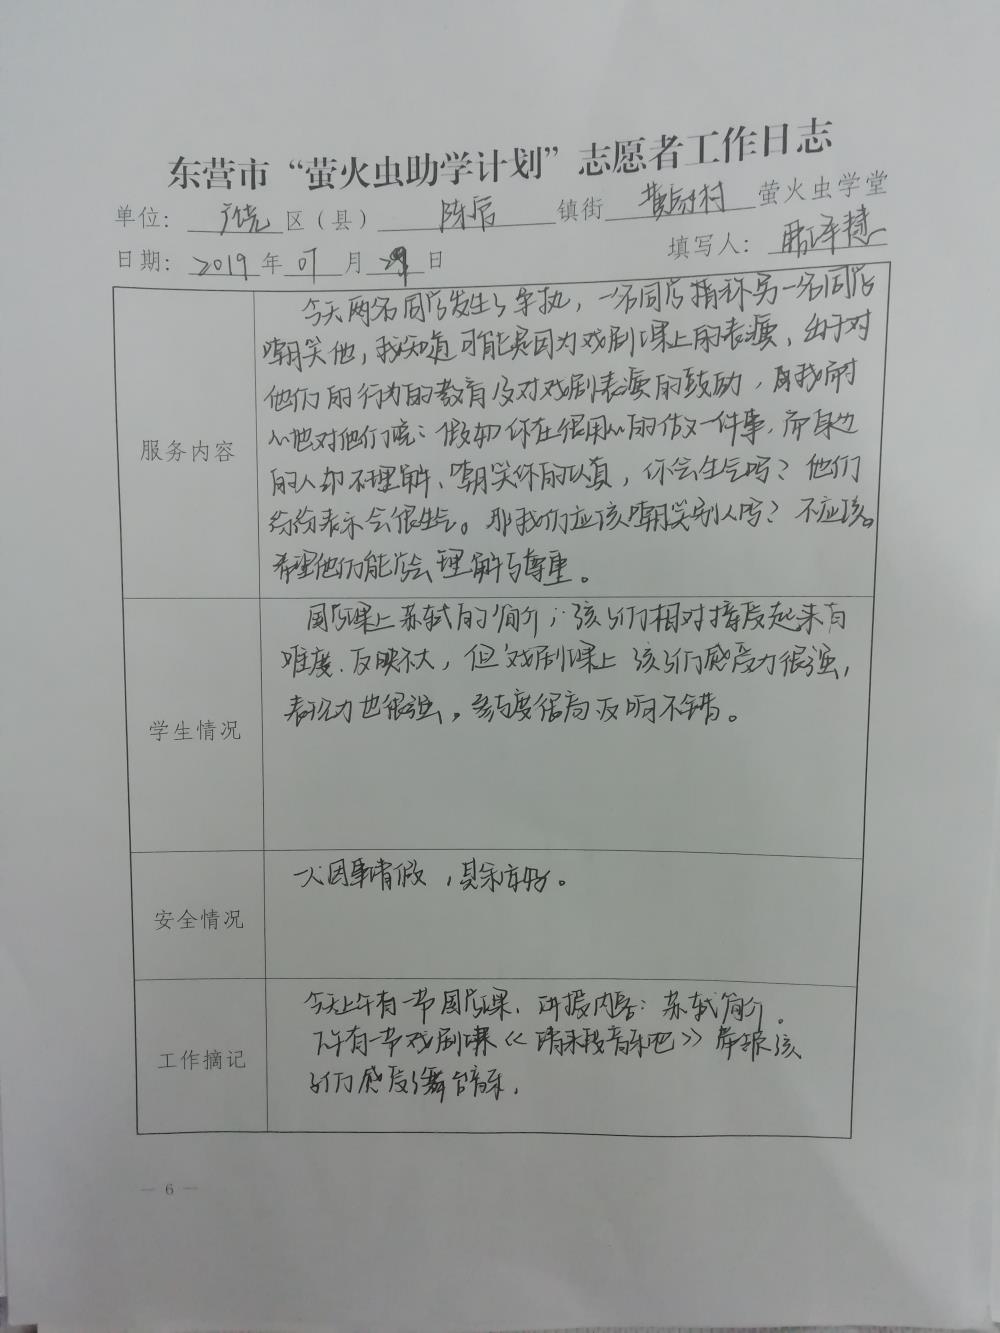 东营市“萤火虫助学计划”志愿者工作日志
单位： 广饶 区（县） 陈官 镇街 村 萤火虫学堂
日期： 2019 年 07 月 29 日 填写人：
服务内容
今天两名同学发生了争执，一名同学指称另一名同学
嘲笑他，我知道可能是因为戏剧课上的表演，出于对
他们的行为的教育及对戏剧表演的鼓励，我耐
心地对他们说：假如你在很用心的做一件事，而身边
的人却不理解、嘲笑你的认真，你会生气吗？他们
纷纷表示会很生气。那我们应该嘲笑别人吗？不应该。
希望他们能学会理解与尊重。
学生情况
国学课上苏轼的简介，孩子们相对接受起来有
难度、反映不大，但戏剧课上孩子们感受力很强，
表现力也很强，参与度很高反响不错。
安全情况
一人因事请假，其余安好。
工作摘记
今天上午有一节国学课，讲授内容：苏轼简介。
下午有一节戏剧课《请来我音乐吧》带领孩
子们感受了舞台音乐，
— 6 —